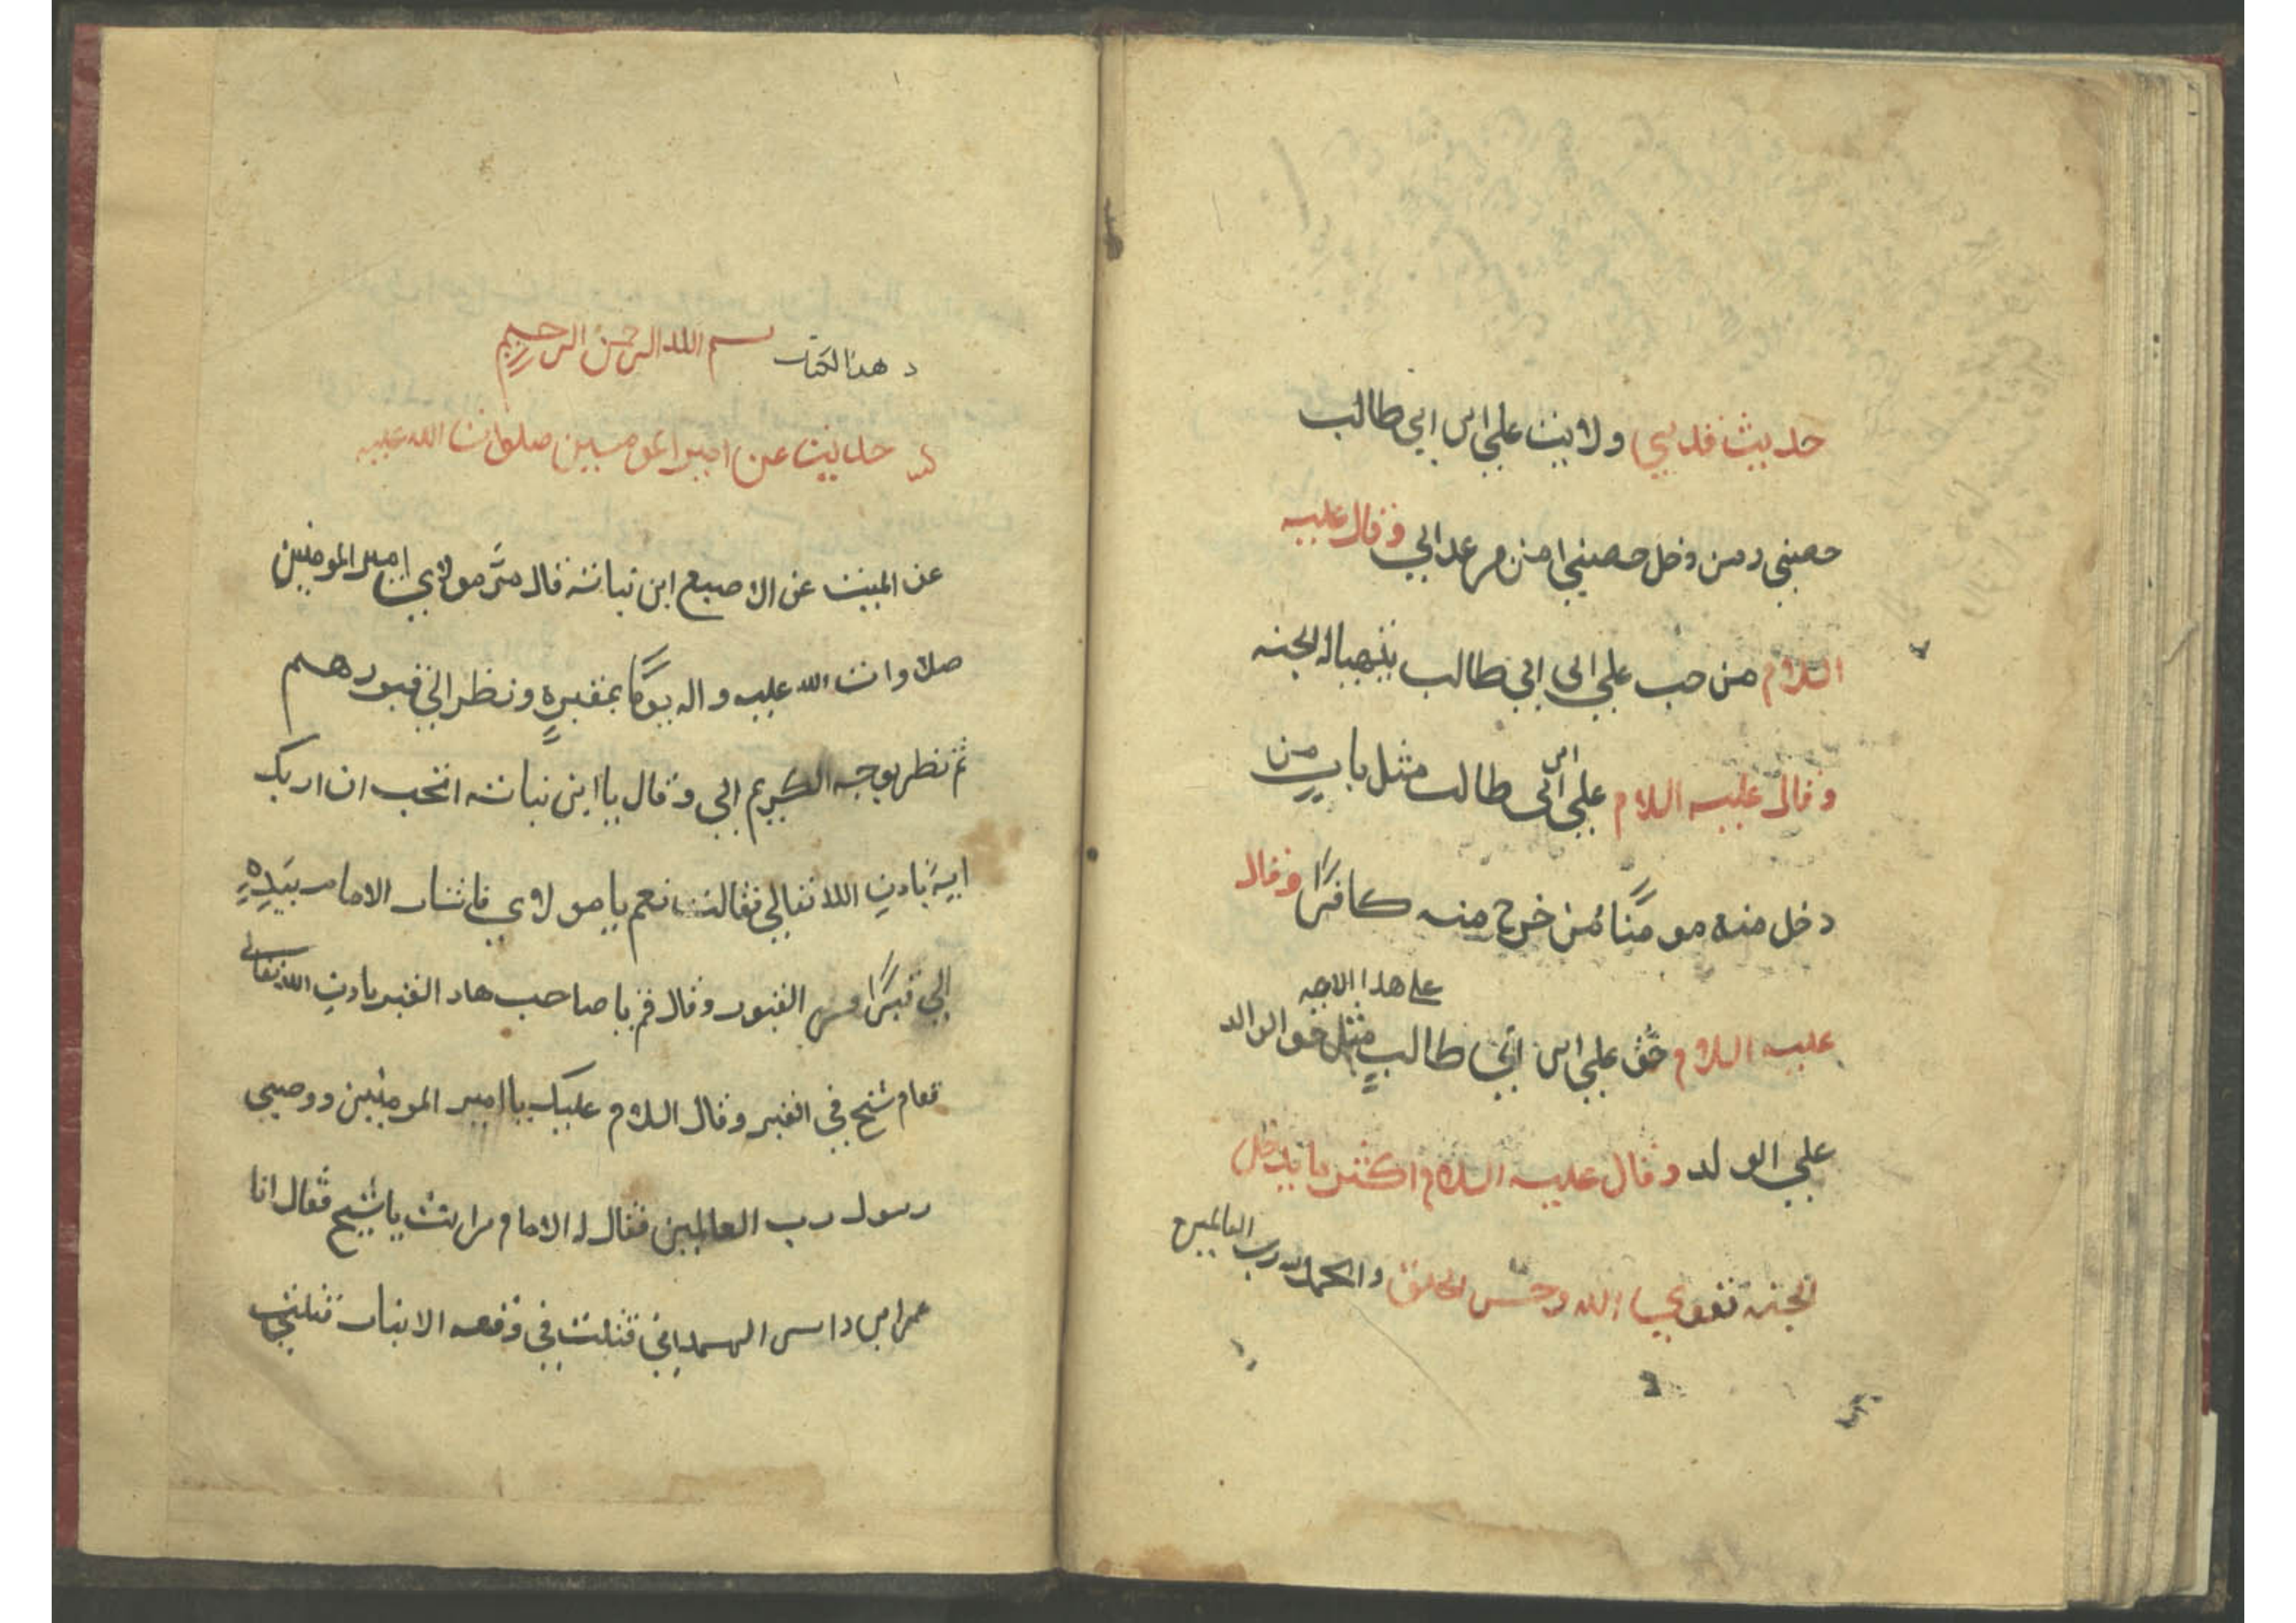 حديث قدسي ولايت علي ابن ابي طالب
حصني ومن دخل حصني امن من عدابي وقال عليه
السلام من حب علي ابن ابي طالب ينهباله الجنه
وقال عليه السلام علي ابن ابى طالب مثل باب من
دخل منه مومنًا من خرج منه كافرًا وقال
على هدا الامه
عليه السلام حق علي ابن ابي طالبٍ مثل حق الوالد
علي الولد وقال عليه السلام اكثر ما يدخل
الجنه تقوي الله وحسن الخلق والحمد لله رب العالمين
د هدا لكتاب بسم الله الرحمن الرحيم
حديث عن امير المومنين صلوات الله عليه
عن الاصبع ابن نباته قال مرَّ مولاي امير المومنين
صلاوات الله عليه واله يومًا بمقبرةٍ ونظر الي قبورهم
ثم نظر بوجه الكريم الي وقال يا ابن نباته اتحب ان اريك
ايةً بادن الله تعالي فقالت نعم يا مولاي فاشار الامام بيدهِ
الي قبرًا من القبور وقال قم يا صاحب هاد القبر بادن الله تعالى
فقام شيخ في القبر وقال السلام عليك يا امير المومنين ووصي
رسول رب العالمين فقال له الامام من انت يا شيخ فقال انا
عمر ابن داس الهمداني قتلت في وقعه الانبار قتلني